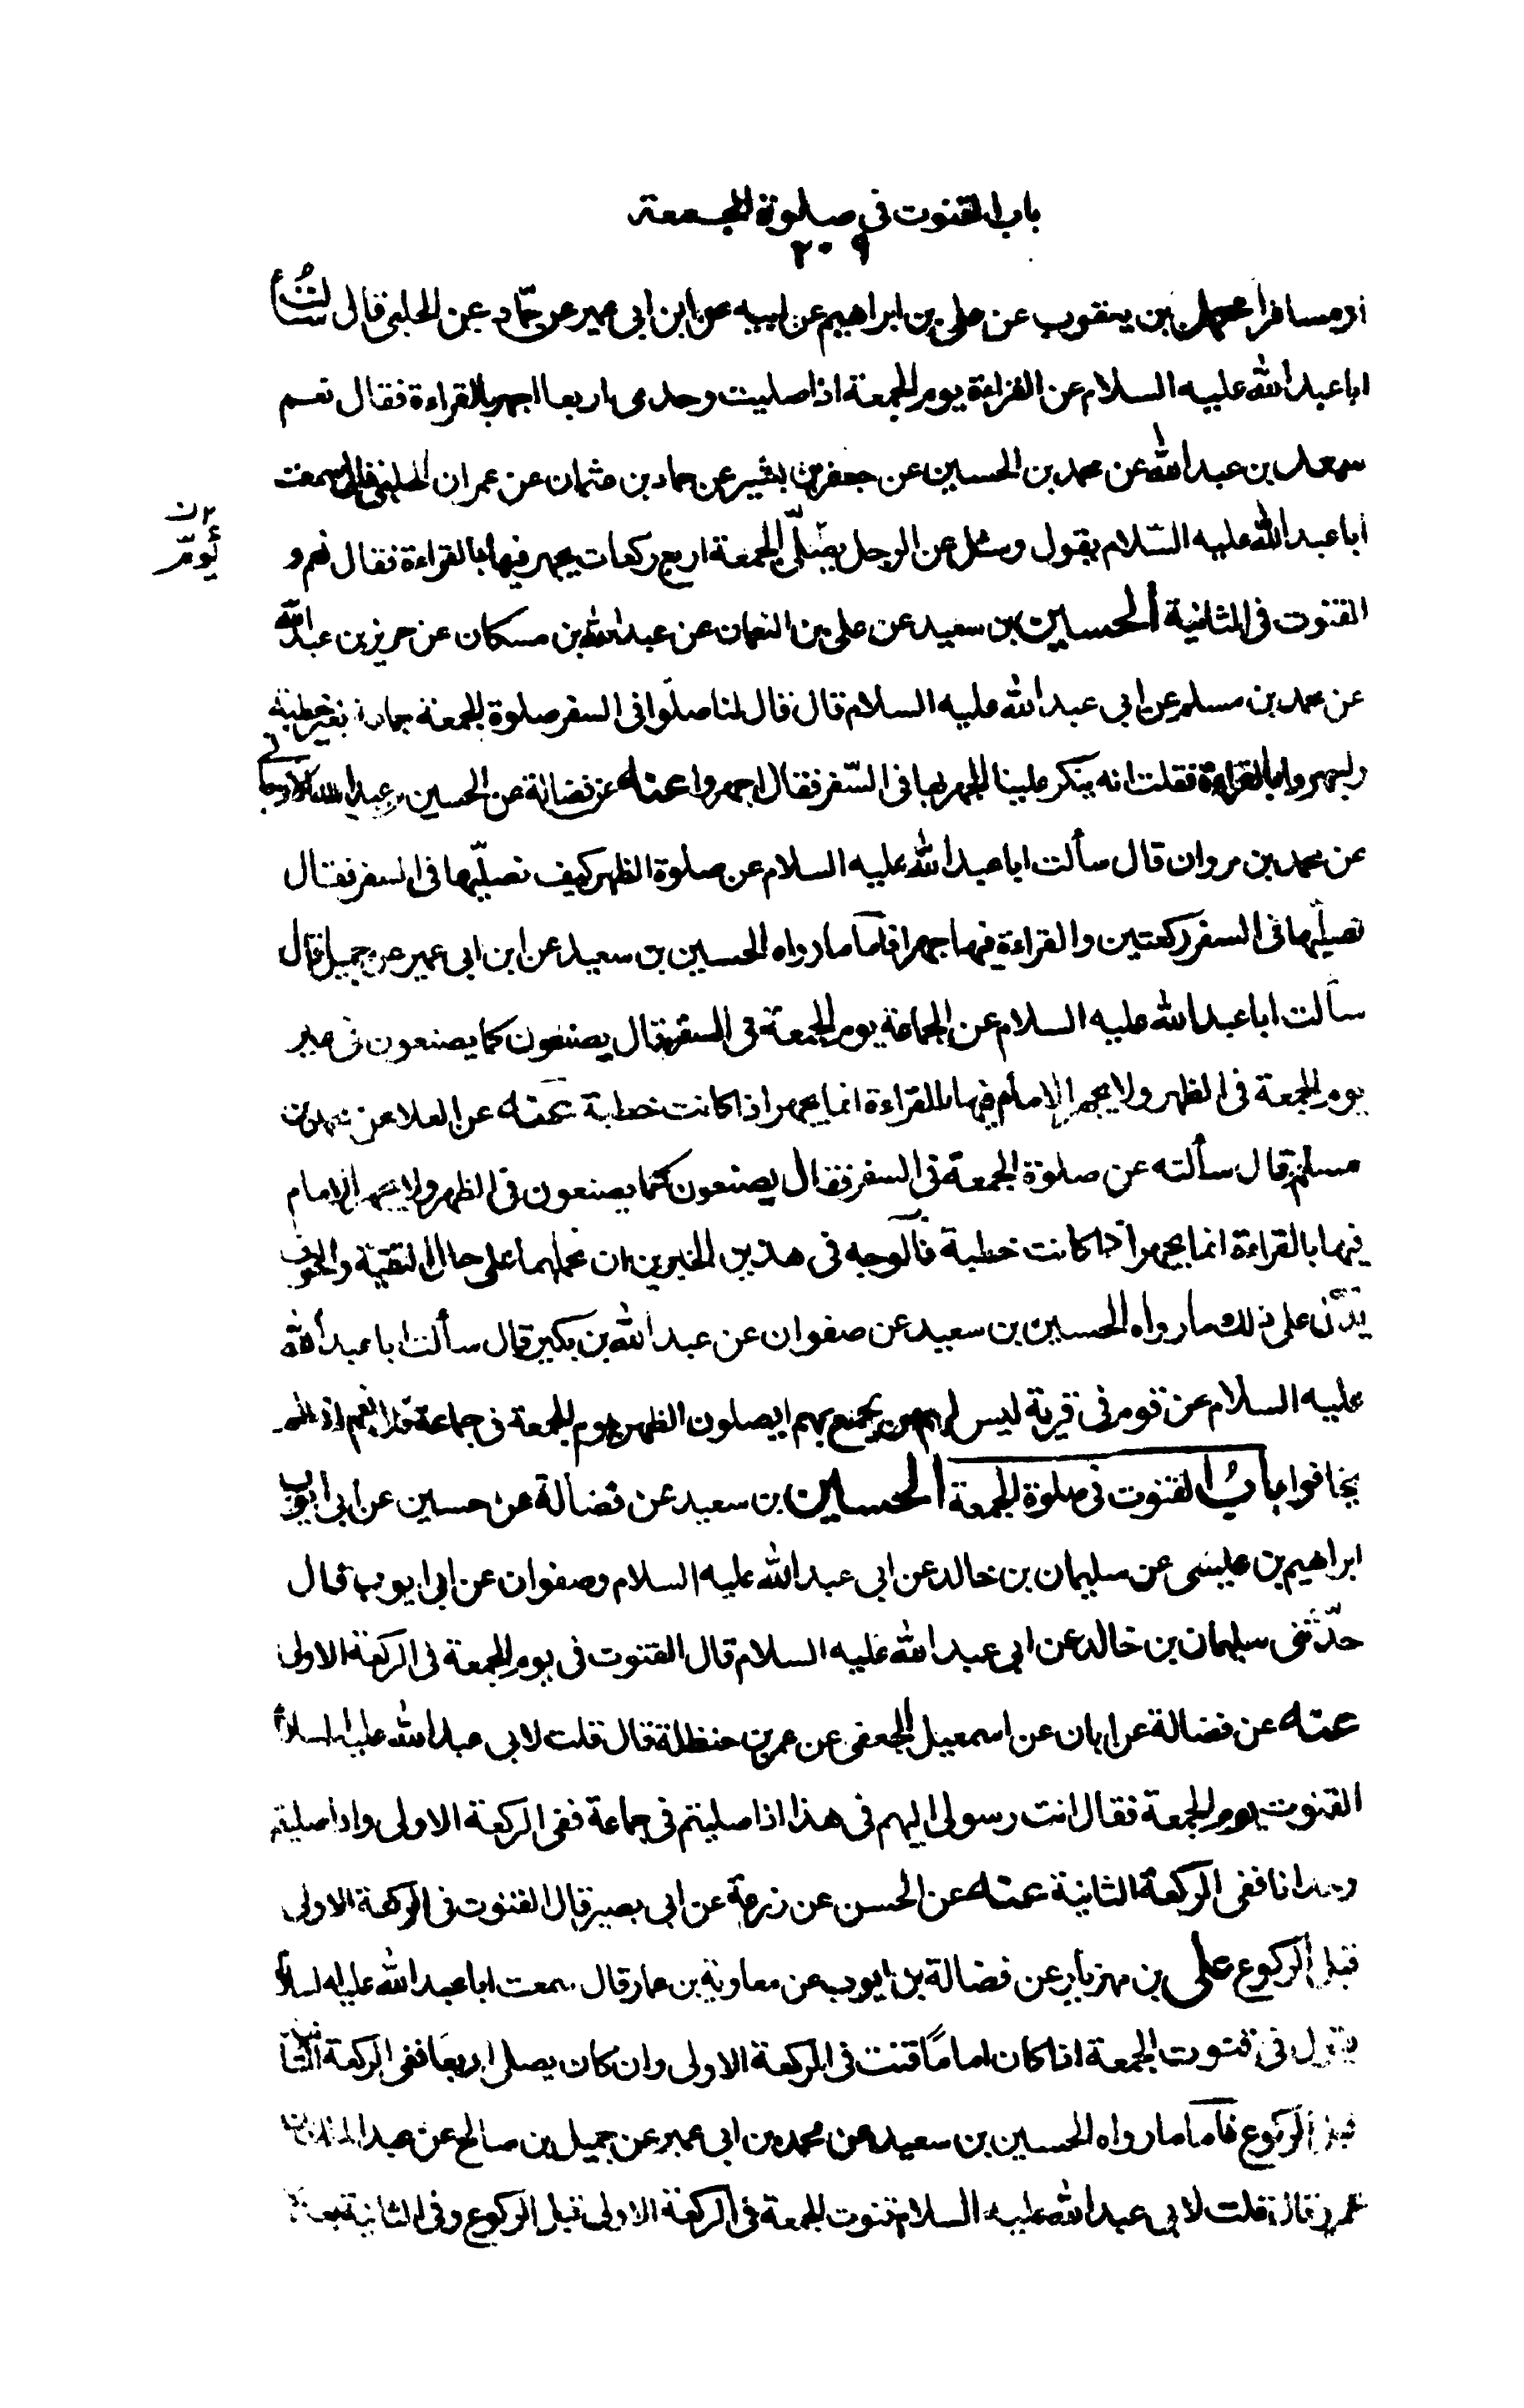 باب القنوت فى صلوة الجمعة
٢٠٩
او مسافرا محمد بن يعقوب عن على بن ابراهيم عن ابيه عن ابن ابى عمير عن حمّاد عن الحلبى قال سألتُ
ابا عبد الله عليه السلام عن القراءة يوم الجمعة اذا صليت وحدى اربعا اجهر بالقراءة فقال نعم
سعد بن عبد الله عن محمد بن الحسين عن جعفر بن بشير عن حماد بن عثمان عن عمران الحلبى قال سمعت
ابا عبد الله عليه السّلام يقول وسئل عن الرجل يصّلّى الجمعة اربع ركعات يجهر فيها بالقراءة فقال نعم و
القنوت فى الثانية الحسين بن سعيد عن على بن النعمان عن عبد الله بن مسكان عن حريز بن عبد الله
عن محمد بن مسلم عن ابى عبد الله عليه السلام قال قال لنا صلّوا فى السفر صلوة الجمعة جماعة بغير خطبة
واجهروا بالقراءة فقلت انه ينكر علينا الجهر بها فى السّفر فقال اجهروا عنه عن فضالة عن الحسين بن عبد الله الارجانى
عن محمد بن مروان قال سألت ابا عبد الله عليه السلام عن صلوة الظهر كيف نصلّيها فى السفر فقال
تصليّها فى السفر ركعتين والقراءة فيها جهرا فآما ما رواه الحسين بن سعيد عن ابن ابى عمير عن جميل قال
سألت ابا عبد الله عليه السلام عن الجماعة يوم الجمعة فى السفر قال يصنعون كما يصنعون فى غير
يوم الجمعة فى الظهر ولا يجهر الامام فيها بالقراءة انما يجهر اذا كانت خطبة عنه عن العلا عن محمد بن
مسلم قال سألته عن صلوة الجمعة فى السفر فقال يصنعون كما يصنعون فى الظهر ولا يجهر الامام
فيها بالقراءة انما يجهر اذا كانت خطبة فآلوجه فى هذين الخبرين ان نحملهما على حال التقية والخوف
يدّل على ذلك ما رواه الحسين بن سعيد عن صفوان عن عبد الله بن بكير قال سألت ابا عبد الله
عليه السلام عن قوم فى قرية ليس لهم من يجمع بهم ايصلون الظهر يوم الجمعة فى جماعة قال نعم اذا لم
يخافوا بابُ القنوت فى صلوة الجمعة الحسين بن سعيد عن فضالة عن حسين عن ابى ايوب
ابراهيم بن عيسى عن سليمان بن خالد عن ابى عبد الله عليه السلام وصفوان عن ابى ايوب قال
حدّثنى سليمان بن خالد عن ابى عبد الله عليه السلام قال القنوت فى يوم الجمعة فى الركعة الاولى
عنه عن فضالة عن ابان عن اسمعيل الجعفى عن عمر بن حنظلة قال قلت لابى عبد الله عليه السلام
القنوت يوم الجمعة فقال انت رسولى اليهم فى هذا اذا صليتم فى جماعة ففى الركعة الاولى واذا صليتم
وحدانا ففى الركعة الثانية عنه عن الحسن عن زرعة عن ابى بصير قال القنوت فى الركعة الاولى
قبل الركوع على بن مهزيار عن فضالة بن ايوب عن معاوية بن عمار قال سمعت ابا عبد الله عليه السلام
يقول فى قنوت الجمعة اذا كان امامًا قنت فى الركعة الاولى وان كان يصلى اربعًا ففى الركعة الثانية
قبل الركوع فآما ما رواه الحسين بن سعيد عن محمد بن ابى عمير عن جميل بن صالح عن عبد الملك بن
عمرو قال قلت لابى عبد الله عليه السلام قنوت الجمعة فى الركعة الاولى قبل الركوع وفى الثانية بعد